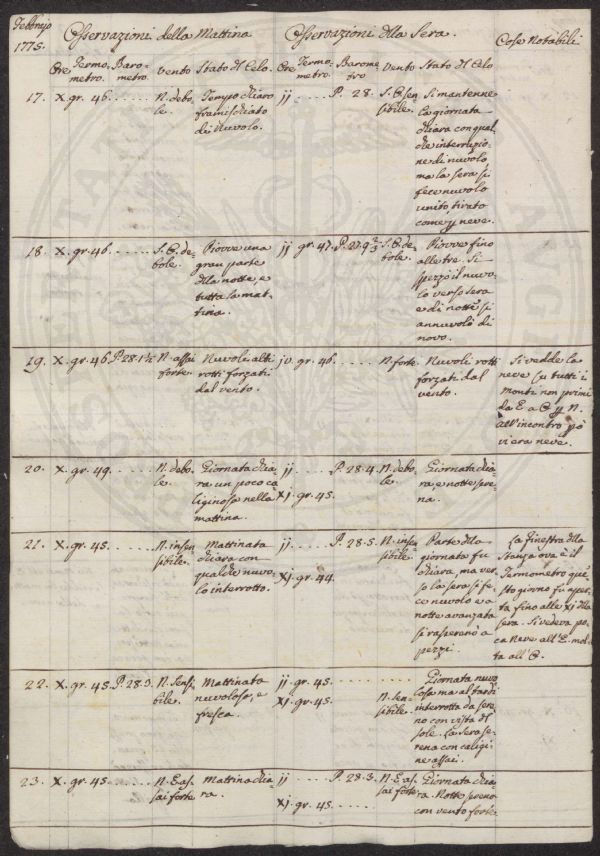 Febbrajo 1775.
Osservazioni della Mattina
Osservazioni dlla Sera.
Cose Notabili
Ore Termo- metro. Baro- metro. Vento Stato dl Celo.
Ore Termo- metro. Barome tro Vento Stato dl Celo
17. X. gr. 46. N. debo- le. Tempo chiaro
framischiato
di Nuvolo.
jj P. 28. S. E. sen sibile. Si mantenne
la giornata
chiara con qual
che interruzio-
ne di nuvolo
ma la sera si
fece nuvolo
unito tirato
come p neve.
18. X. gr. 46. S. E. de- bole. Piovve una
gran parte
dlla notte, e
tutta la mat-
tina.
jj gr. 47. P. 27. 9 2/3 S. E. de- bole. Piovve fino
alle tre. Si
spezzò il nuvo-
lo verso sera
e di notte si
annuvolò di
novo.
19. X. gr. 46. P. 28. 1 1/2 N. assai forte. Nuvoli alti
rotti forzati
dal vento.
jv. gr. 46. N. forte. Nuvoli rotti
forzati dal
vento.
Si vedde la
neve su tutti i
Monti non primi
da E a p N.
all'incontro
vi era neve.
20. X. gr. 49. N. debo- le. Giornata chia-
ra un poco ca
liginosa nella
mattina.
jj P. 28. 4. N. debo- le. Giornata chia-
ra e notte sere-
na.
Xj. gr. 45.
21. X. gr. 45. N. insen sibile. Mattinata
chiara con
qualche nuvo-
lo interrotto.
jj. P. 28. 5. N. insen- sibile. Parte dlla
giornata fu
chiara, ma ver
so la sera si fe-
ce nuvolo e a
notte avanzata
si rasserenò a
pezzi.
Xj. gr. 44.
La finestra dlla
Stanza ova è il
Termometro que-
sto giorno fu aper-
ta fino alle Xj dlla
sera. Si vedeva po-
ca Neve all'E. mol-
ta all'
22. X. gr. 45. P. 28. 3. N. Sensi bile. Mattinata
nuvolosa, e
fresca.
jj gr. 45.
Xj. gr. 45. N. sen- sibile. Giornata nuvo
losa ma al tardi
interrotta da sere
no con vista dl
sole. La sera se-
rena con caligi
ne assai.
23. X. gr. 45 N. E as- sai forte Mattina chia-
ra.
jj P. 28. 3. N. E as- sai forte Giornata chia-
ra. Notte serena
con vento forte.
Xj. gr. 45.